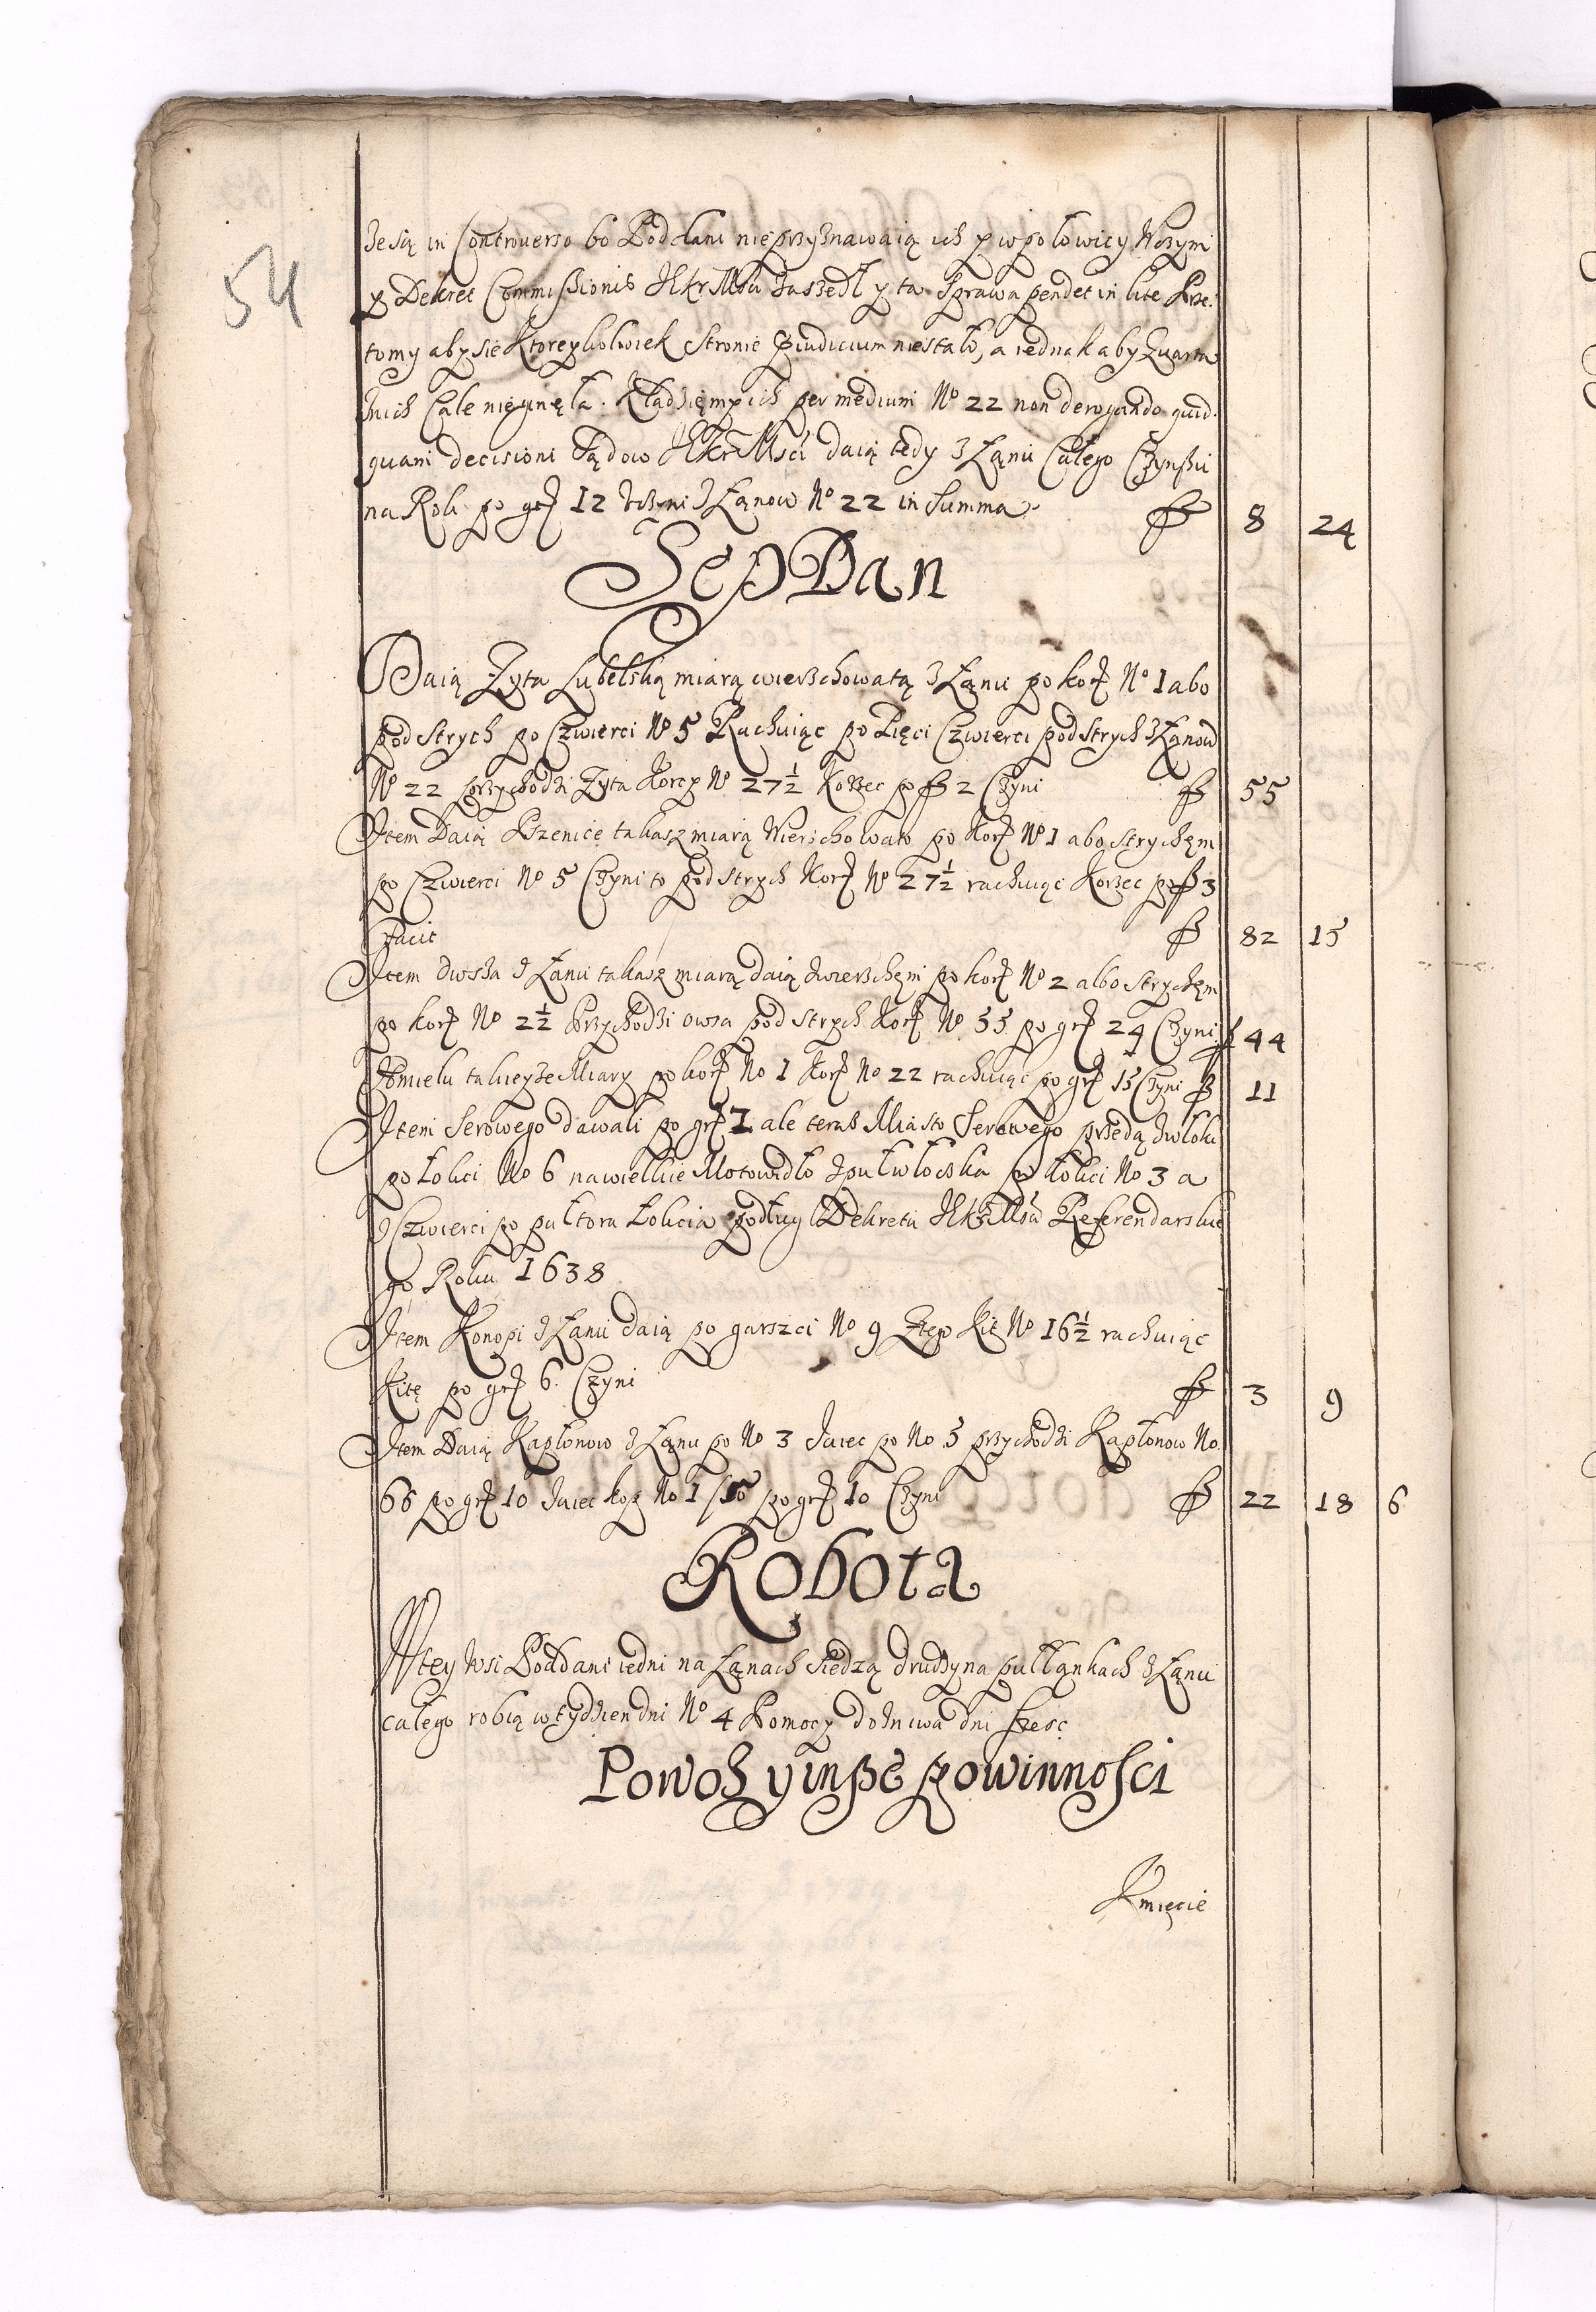 54
że są in Controverso bo Poddani nieprzyznawaią ich y wpołowicy W czym
y Dekret Commissionis JKr Msci zaszedł y ta Sprawa pendet in lite Prze:
tomy aby sie ktoreykolwiek Stronie Piudicium niestało, a iednak aby Quarta
znich Cale nieginęła. Kładzięmy ich per medium No 22 non derogando quid:
quam decisioni Sądow JKr Msci daią tedy z Łanu Całego Czynszu
na Rok po grJ 12 Uczyni z Łanow No 22 in Summa f 8 24
Sep Dan
Daią Zyta Lubelską miarą wierzchowatą z Łanu po korJ No 1 abo
pod Strych po Czwierci No 5 Rachuiąc po Pięci Czwierci pod Strych z Łanow
No 22 przychodzi Zyta Korcy No 27½ Korzec po f 2 Czyni f 55
Item Daią Pszenicę takasz miarą Wierzchowato po KorJ No 1 abo Strychęm
po Czwierci No 5 Czyni to pod Strych KorJ No 27½ rachuiąc Korzec po f 3
facit f 82 15
Item Owsa z Łanu takasz miarą daią zwierzchęm po korJ No 2 albo Strychęm
po korJ No 2½ Przychodzi owsa pod strych KorJ No 55 po grJ 24 Czyni f 44
Chmielu takieyze Miary po korJ No 1 KorJ No 22 rachuiąc po grJ 15 Czyni f 11
Item Serowego dawali po grJ 1 ale teras Miasto Serowego przedą zwłoki
po Łokci No 6 na wielkie Motowidło z pułwłoczka po Łokci No 3 a
z Czwierci po pułtora Łokcia podług Dekretu JKr Msci Referendarskie
go Roku 1638
Item Konopi z Łanu daią po garszci No 9 Ztep Kit No 16½ rachuiąc
Kitę po grJ 6. Czyni f 3 9
Item Daią Kapłonow z Łanu po No 3 Jaiec po No 5 przychodzi Kapłonow No
66 po grJ 10 Jaiec kop No 1/50 po grJ 10 Czyni f 22 18 6
Robota
W tey Wsi Poddani iedni na Łanach Siedzą drudzy na pułłankach z Łanu
całego robią w tydzien dni No 4 Pomocy do żniwa dni szesc
Powoz y insze powinnosci
Kmięcie